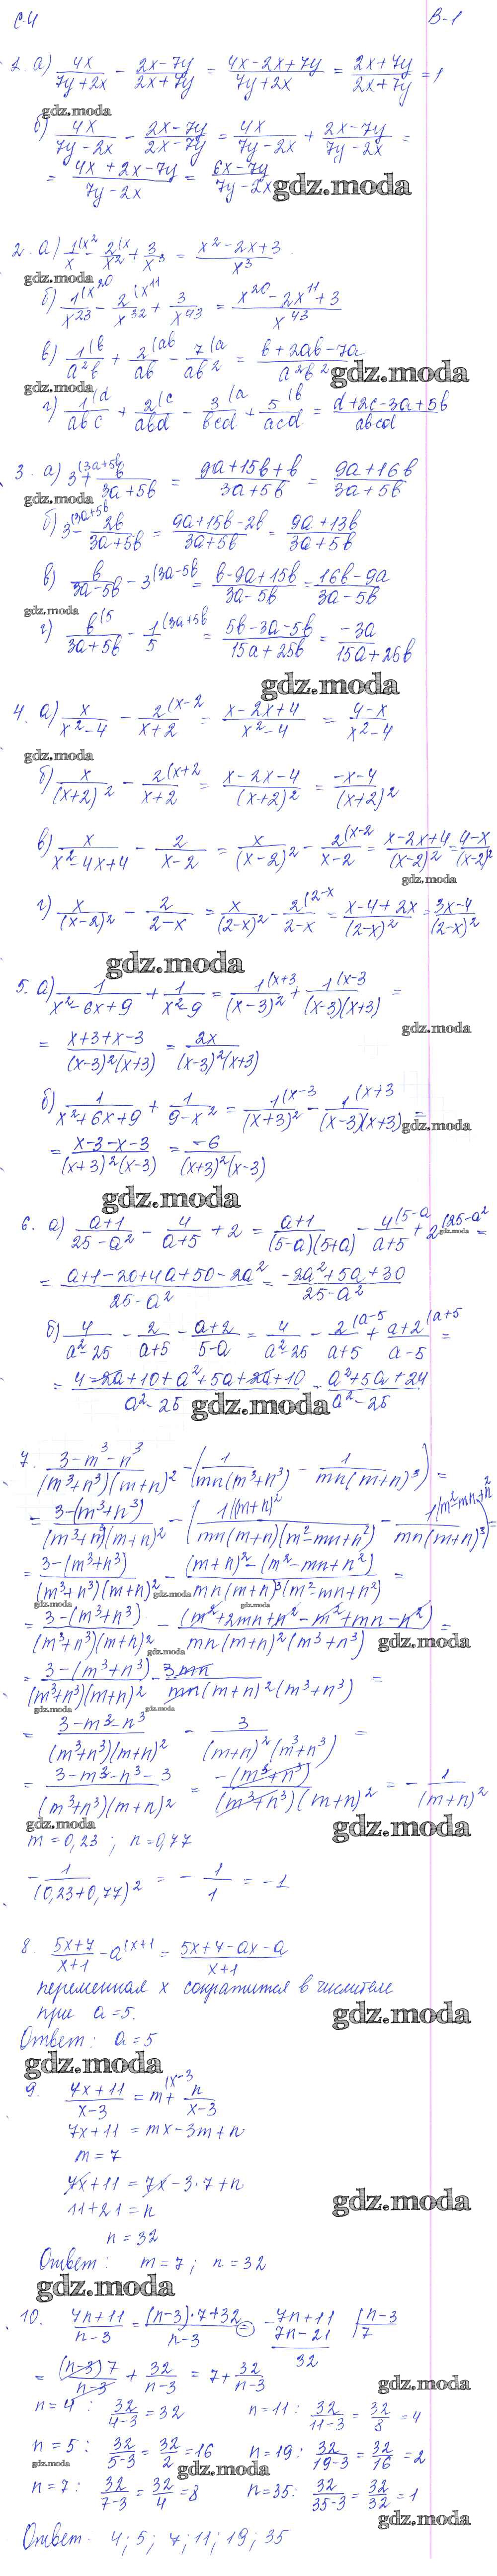 С-4 В-1
1. а) 4x/(7y+2x) - (2x-7y)/(2x+7y) = (4x-2x+7y)/(7y+2x) = (2x+7y)/(2x+7y) = 1
gdz.moda
б) 4x/(7y-2x) - (2x-7y)/(2x-7y) = 4x/(7y-2x) + (2x-7y)/(7y-2x) =
= (4x+2x-7y)/(7y-2x) = (6x-7y)/(7y-2x)
gdz.moda
2. а) 1(x²/x - 2(x/x² + 3/x³ = (x²-2x+3)/x³
gdz.moda
б) 1(x²⁰/x²³ - 2(x¹¹/x³² + 3/x⁴³ = (x²⁰-2x¹¹+3)/x⁴³
в) 1(b/a²b + 2(ab/ab - 7(a/ab² = (b+2ab-7a)/a²b²
gdz.moda
gdz.moda
г) 1(d/abc + 2(c/abd - 3(a/bcd + 5(b/acd = (d+2c-3a+5b)/abcd
3. а) 3(3a+5b + b/(3a+5b) = (9a+15b+b)/(3a+5b) = (9a+16b)/(3a+5b)
gdz.moda
б) 3(3a+5b - 2b/(3a+5b) = (9a+15b-2b)/(3a+5b) = (9a+13b)/(3a+5b)
в) b/(3a-5b) - 3(3a-5b = (b-9a+15b)/(3a-5b) = (16b-9a)/(3a-5b)
gdz.moda
г) b(5/(3a+5b) - 1(3a+5b/5 = (5b-3a-5b)/(15a+25b) = -3a/(15a+25b)
gdz.moda
4. а) x/(x²-4) - 2(x-2/(x+2) = (x-2x+4)/(x²-4) = (4-x)/(x²-4)
gdz.moda
б) x/(x+2)² - 2(x+2/(x+2) = (x-2x-4)/(x+2)² = (-x-4)/(x+2)²
в) x/(x²-4x+4) - 2/(x-2) = x/(x-2)² - 2(x-2/(x-2) = (x-2x+4)/(x-2)² = (4-x)/(x-2)²
gdz.moda
г) x/(x-2)² - 2/(2-x) = x/(2-x)² - 2(2-x/(2-x) = (x-4+2x)/(2-x)² = (3x-4)/(2-x)²
gdz.moda
5. а) 1/(x²-6x+9) + 1/(x²-9) = 1(x+3/(x-3)² + 1(x-3/(x-3)(x+3) =
gdz.moda
= (x+3+x-3)/(x-3)²(x+3) = 2x/(x-3)²(x+3)
б) 1/(x²+6x+9) + 1/(9-x²) = 1(x-3/(x+3)² - 1(x+3/(x-3)(x+3) =
gdz.moda
= (x-3-x-3)/(x+3)²(x-3) = -6/(x+3)²(x-3)
gdz.moda
6. а) (a+1)/(25-a²) - 4/(a+5) + 2 = (a+1)/(5-a)(5+a) - 4(5-a/(a+5) + 2(25-a² =
gdz.moda
= (a+1-20+4a+50-2a²)/(25-a²) = (-2a²+5a+30)/(25-a²)
б) 4/(a²-25) - 2/(a+5) - (a+2)/(5-a) = 4/(a²-25) - 2(a-5/(a+5) + a+2(a+5/(a-5) =
= (4-2a+10+a²+5a+2a+10)/(a²-25) = (a²+5a+24)/(a²-25)
gdz.moda
7. (3-m³-n³)/(m³+n³)(m+n)² - (1/mn(m³+n³) - 1/mn(m+n)³) =
= (3-(m³+n³))/(m³+n³)(m+n)² - (1((m+n)²/mn(m+n)(m²-mn+n²) - 1(m²-mn+n²/mn(m+n)³) =
= (3-(m³+n³))/(m³+n³)(m+n)² - ((m+n)²-(m²-mn+n²))/mn(m+n)³(m²-mn+n²) =
gdz.moda gdz.moda gdz.moda
= (3-(m³+n³))/(m³+n³)(m+n)² - (m²+2mn+n²-m²+mn-n²)/mn(m+n)²(m³+n³) =
gdz.moda gdz.moda
= (3-(m³+n³))/(m³+n³)(m+n)² - 3mn/mn(m+n)²(m³+n³) =
gdz.moda gdz.moda
= (3-m³-n³)/(m³+n³)(m+n)² - 3/(m+n)²(m³+n³) =
= (3-m³-n³-3)/(m³+n³)(m+n)² = -(m³+n³)/(m³+n³)(m+n)² = -1/(m+n)²
gdz.moda gdz.moda
m=0,23 ; n=0,77
-1/(0,23+0,77)² = -1/1 = -1
8. (5x+7)/(x+1) - a(x+1 = (5x+7-ax-a)/(x+1)
переменная x сократится в числителе
при a=5.
gdz.moda
Ответ: a=5
gdz.moda
9. (7x+11)/(x-3) = m(x-3 + n/(x-3)
7x+11 = mx-3m+n
m=7
7x+11 = 7x-3·7+n
11+21=n
gdz.moda
n=32
Ответ: m=7; n=32
gdz.moda
10. (7n+11)/(n-3) = ((n-3)·7+32)/(n-3) = - 7n+11 | n-3
7n-21 7
32
= (n-3)7/(n-3) + 32/(n-3) = 7 + 32/(n-3)
gdz.moda
n=4: 32/(4-3) = 32 n=11: 32/(11-3) = 32/8 = 4
n=5: 32/(5-3) = 32/2 = 16 n=19: 32/(19-3) = 32/16 = 2
gdz.moda gdz.moda
n=7: 32/(7-3) = 32/4 = 8 n=35: 32/(35-3) = 32/32 = 1
gdz.moda
Ответ. 4; 5; 7; 11; 19; 35